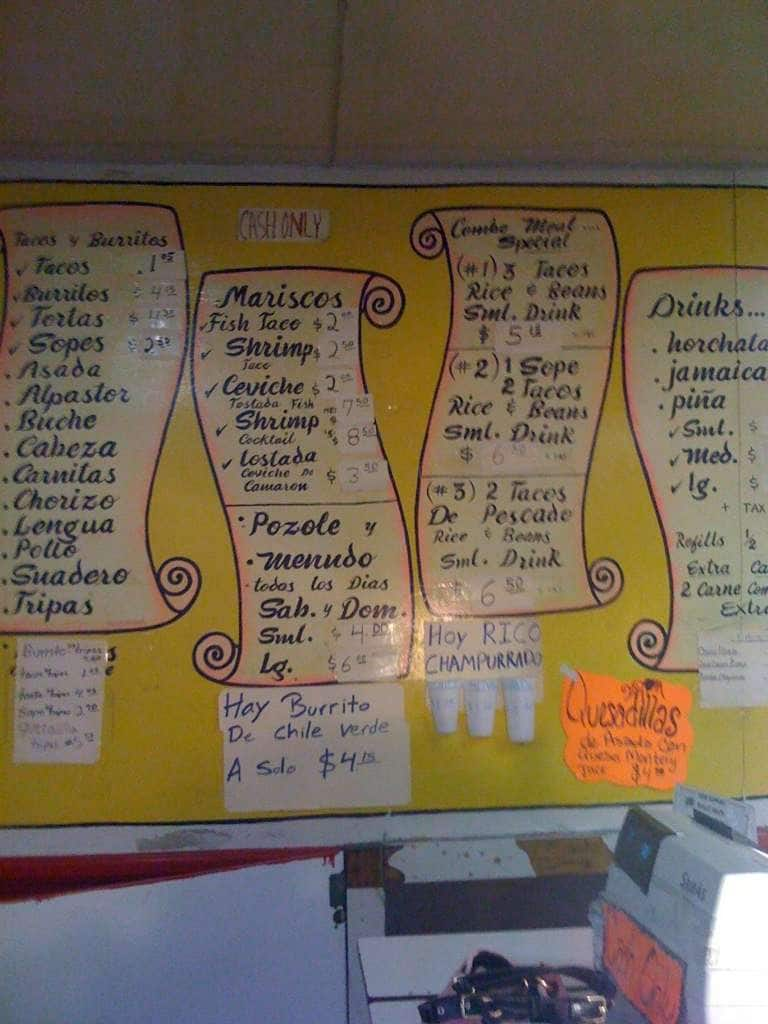 Tacos y Burritos
Tacos .1
Burritos $4
Tortas $
Sopes $2
.Asada
.Alpastor
.Buche
.Cabeza
.Carnitas
.Chorizo
.Lengua
.Pollo
.Suadero
.Tripas
Burrito
CASH ONLY
Mariscos
Fish Taco $2
Shrimp $2
Taco
Ceviche $2
Tostada Fish
Shrimp 7 50
Cocktail 8 50
Tostada
Ceviche De
Camaron $3 50
.Pozole y
.menudo
todos los Dias
Sab. y Dom.
Sml. $4.00
Lg. $6
Hay Burrito
De Chile Verde
A Solo $4.15
Combo Meal...
Special
(#1) 3 Tacos
Rice & Beans
Sml. Drink
$5
(#2) 1 Sope
2 Tacos
Rice & Beans
Sml. Drink
$6
(#3) 2 Tacos
De Pescado
Rice & Beans
Sml. Drink
$6 50
Hoy RICO
CHAMPURRADO
Quesadillas
de Asada Con
Queso Montery
Jack $4
Drinks...
.horchata
.jamaica
.piña
Sml. $
Med. $
lg. $
+ TAX
Refills 1/2
Extra
2 Carne
Extra